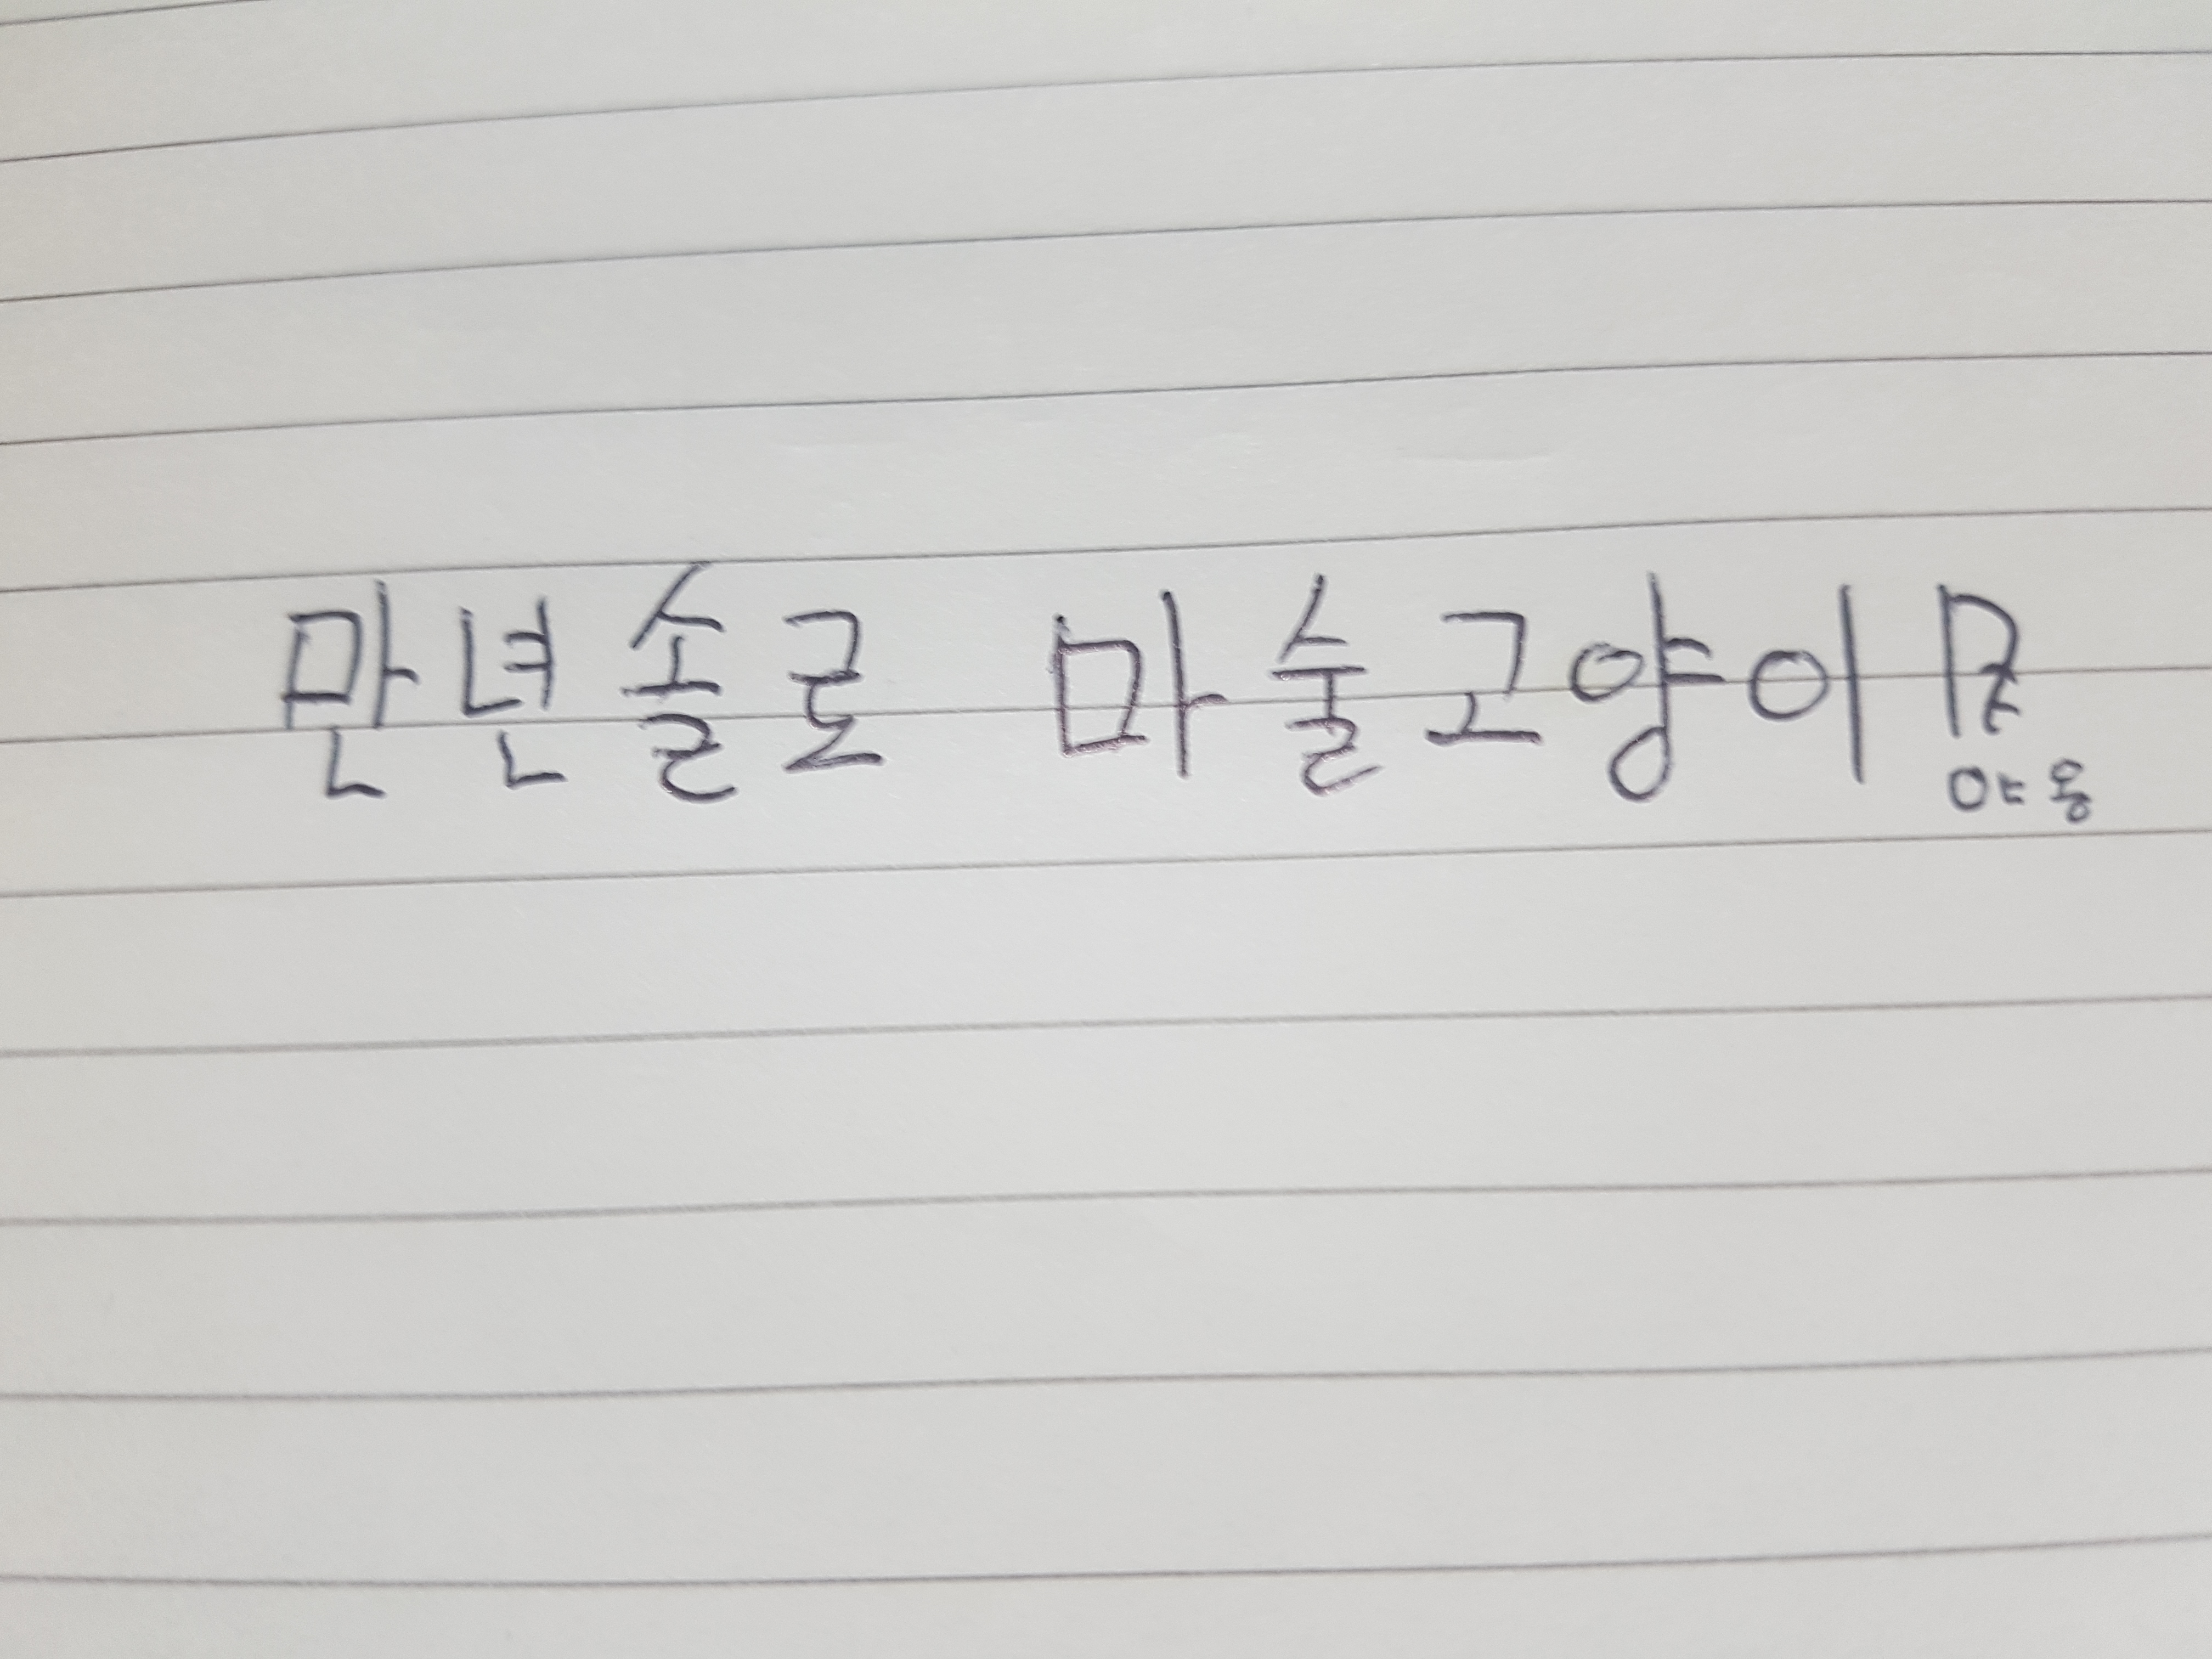 만년솔로 마술고양이
야옹